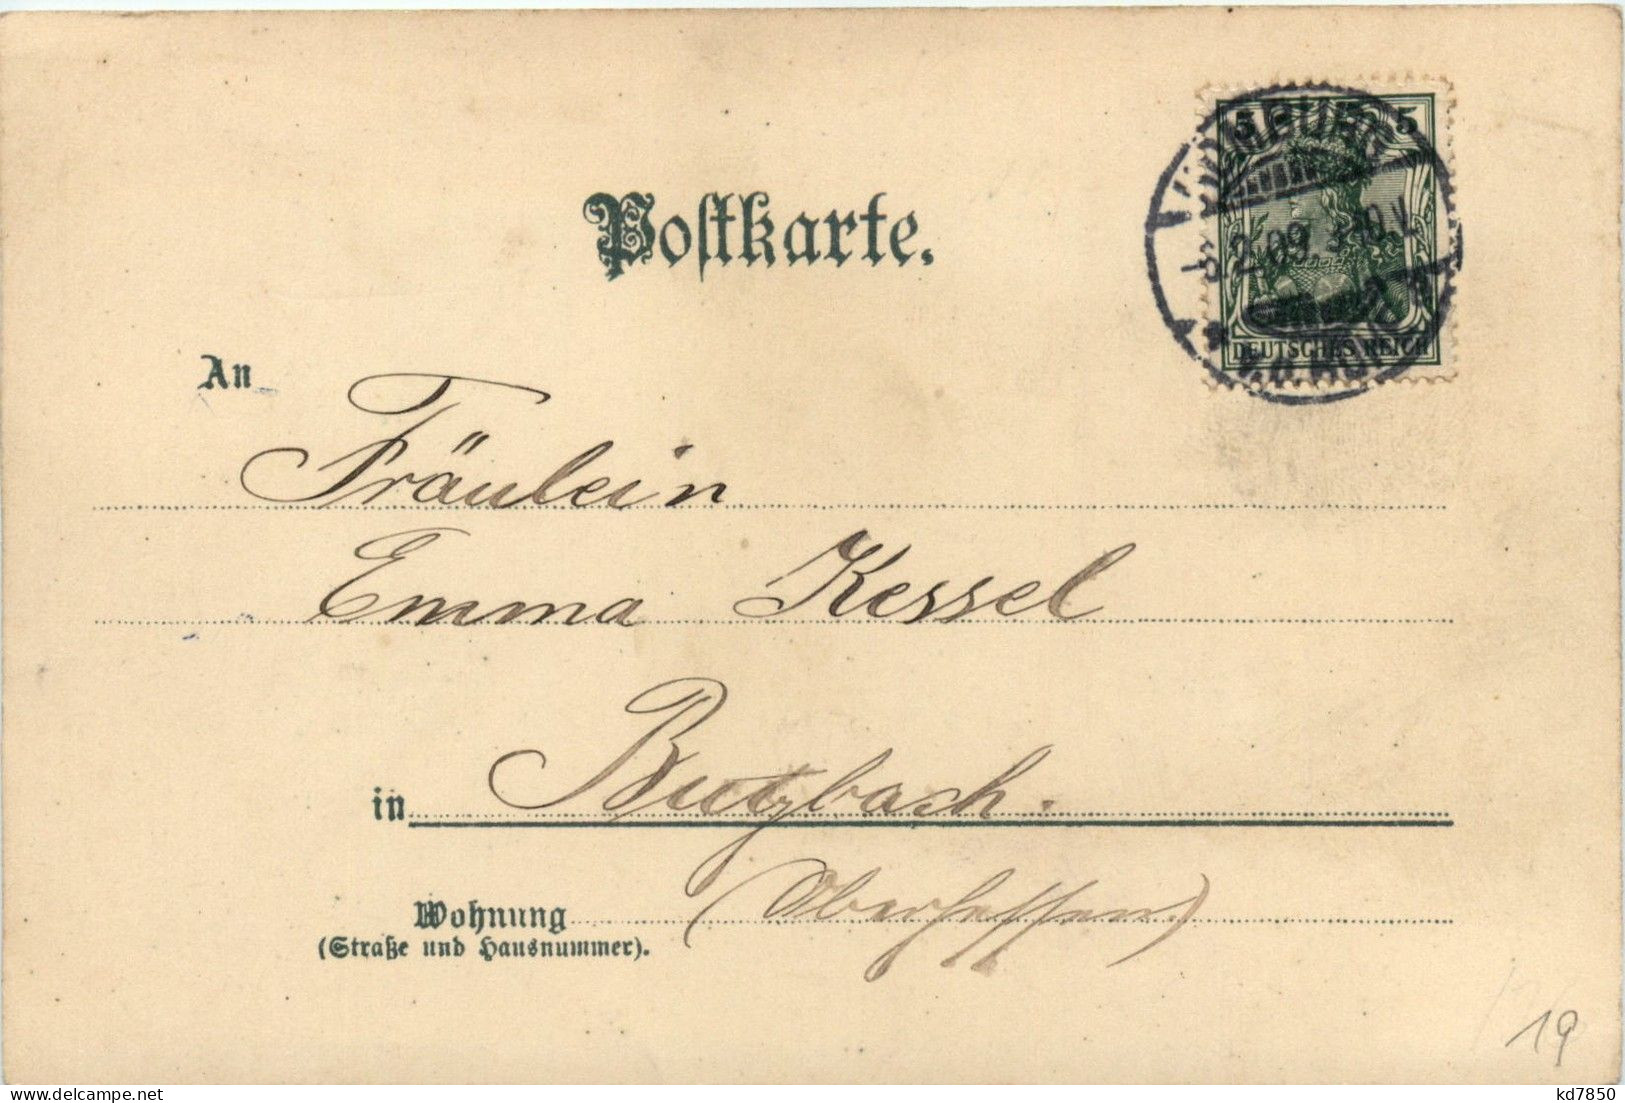 Postkarte.
5 5
HOMBURG
6.2.09. 9-10.V.
v.d. HÖHE
DEUTSCHES REICH
An
Fräulein
Emma Kessel
in Butzbach.
Wohnung (Oberhessen)
(Straße und Hausnummer).
19
kd7850